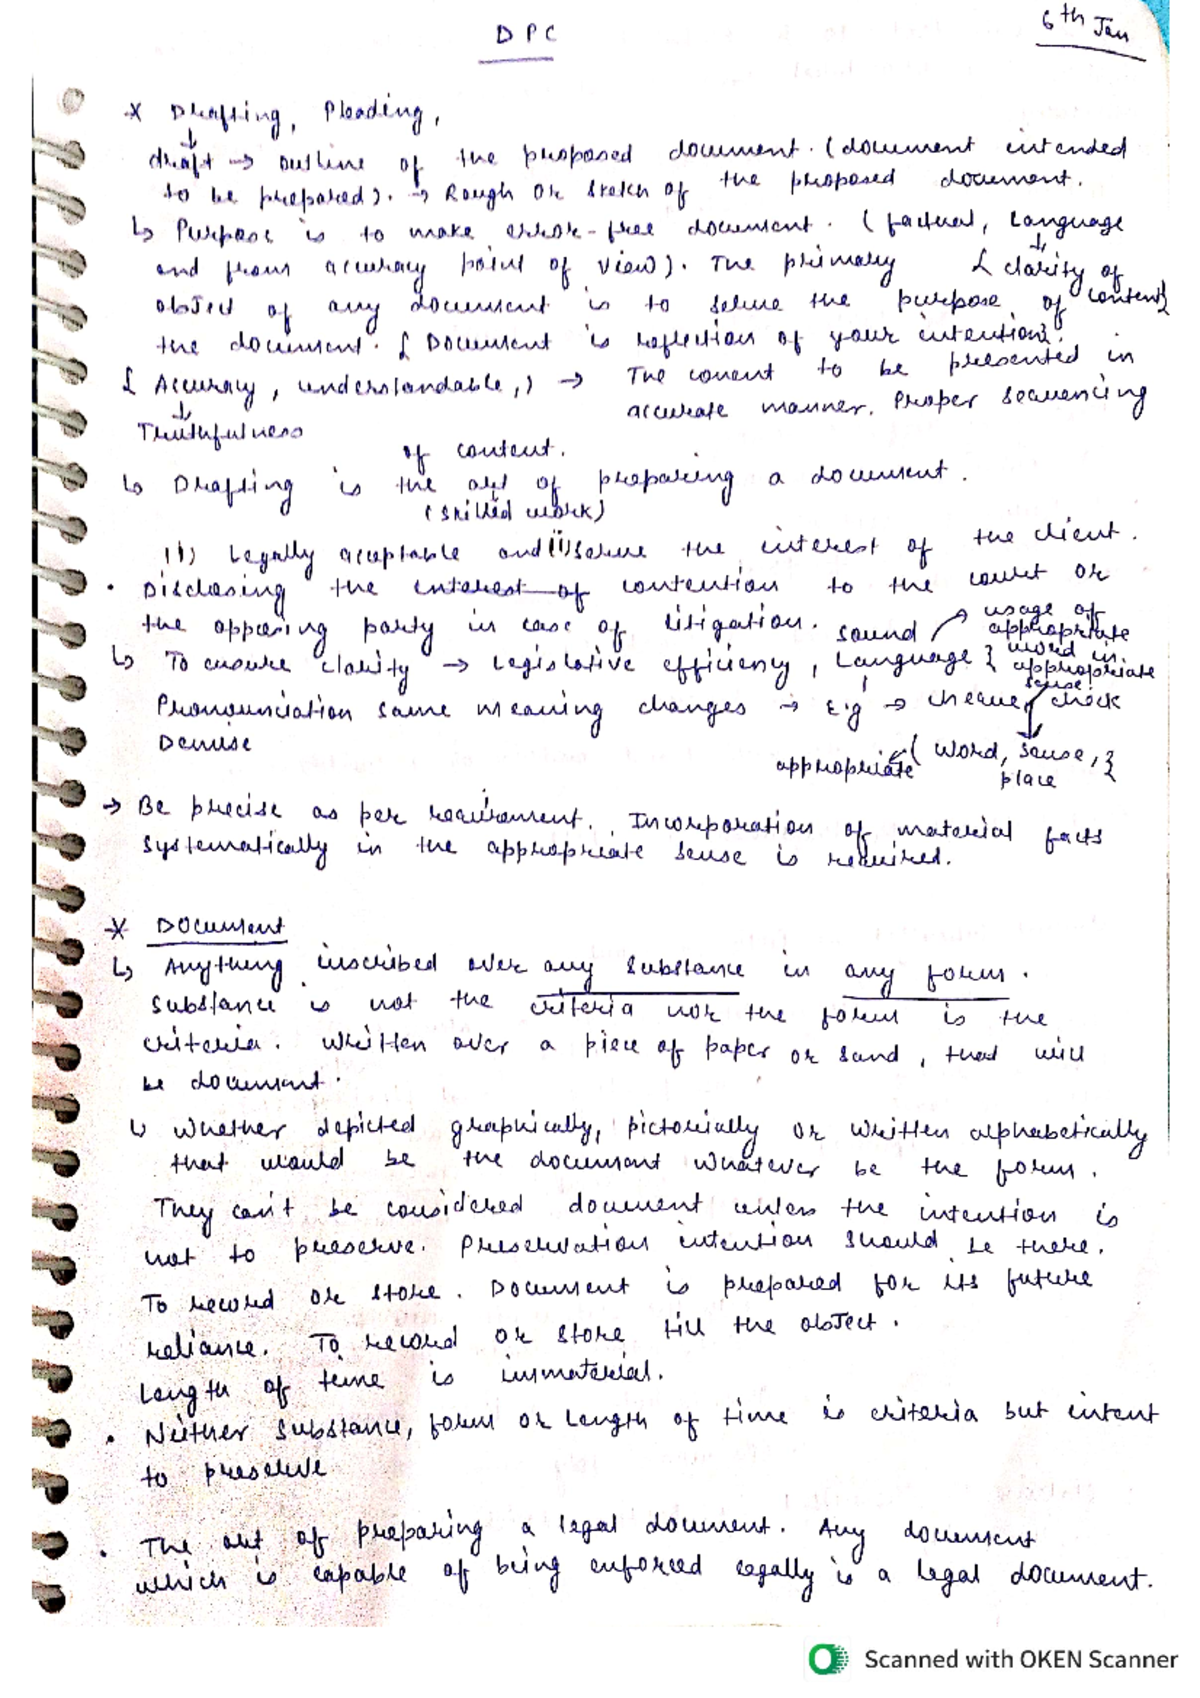 DPC
6th Jan
* Drafting, Pleading,
draft → outline of the proposed document. (document intended
to be prepared). → Rough or sketch of the proposed document.
↳ Purpose is to make error-free document. (factual, language
and from accuracy point of view). The primary { clarity of content}
object of any document is to serve the purpose of
the document. { Document is reflection of your intention}.
{ Accuracy, understandable,) → The conent to be presented in
↓
Truthfulness
accurate manner. Proper sequencing
of content.
↳ Drafting is the art of preparing a document.
(skilled work)
(i) Legally acceptable and (ii) serve the interest of the client.
• Disclosing the interest of contention to the court or
the opposing party in case of litigation.
↳ To ensure clarity → Legislative efficiency, sound Language } usage of appropriate word in appropriate sense.
Pronounciation same meaning changes → E.g → cheque, check
Demise
appropriate ( word, sense, }
place
→ Be precise as per requirement. Incorporation of material facts
systematically in the appropriate sense is required.
* Document
↳ Anything inscribed over any substance in any form.
Substance is not the criteria nor the form is the
criteria. Written over a piece of paper or sand, that will
be document.
↳ Whether depicted graphically, pictorially or written alphabetically
that would be the document whatever be the form.
They can't be considered document unless the intention is
not to preserve. Preservation intention should be there.
To record or store. Document is prepared for its future
reliance. To record or store till the object.
Length of time is immaterial.
• Neither substance, form or length of time is criteria but intent
to preserve
• The art of preparing a legal document. Any document
which is capable of being enforced legally is a legal document.
Scanned with OKEN Scanner